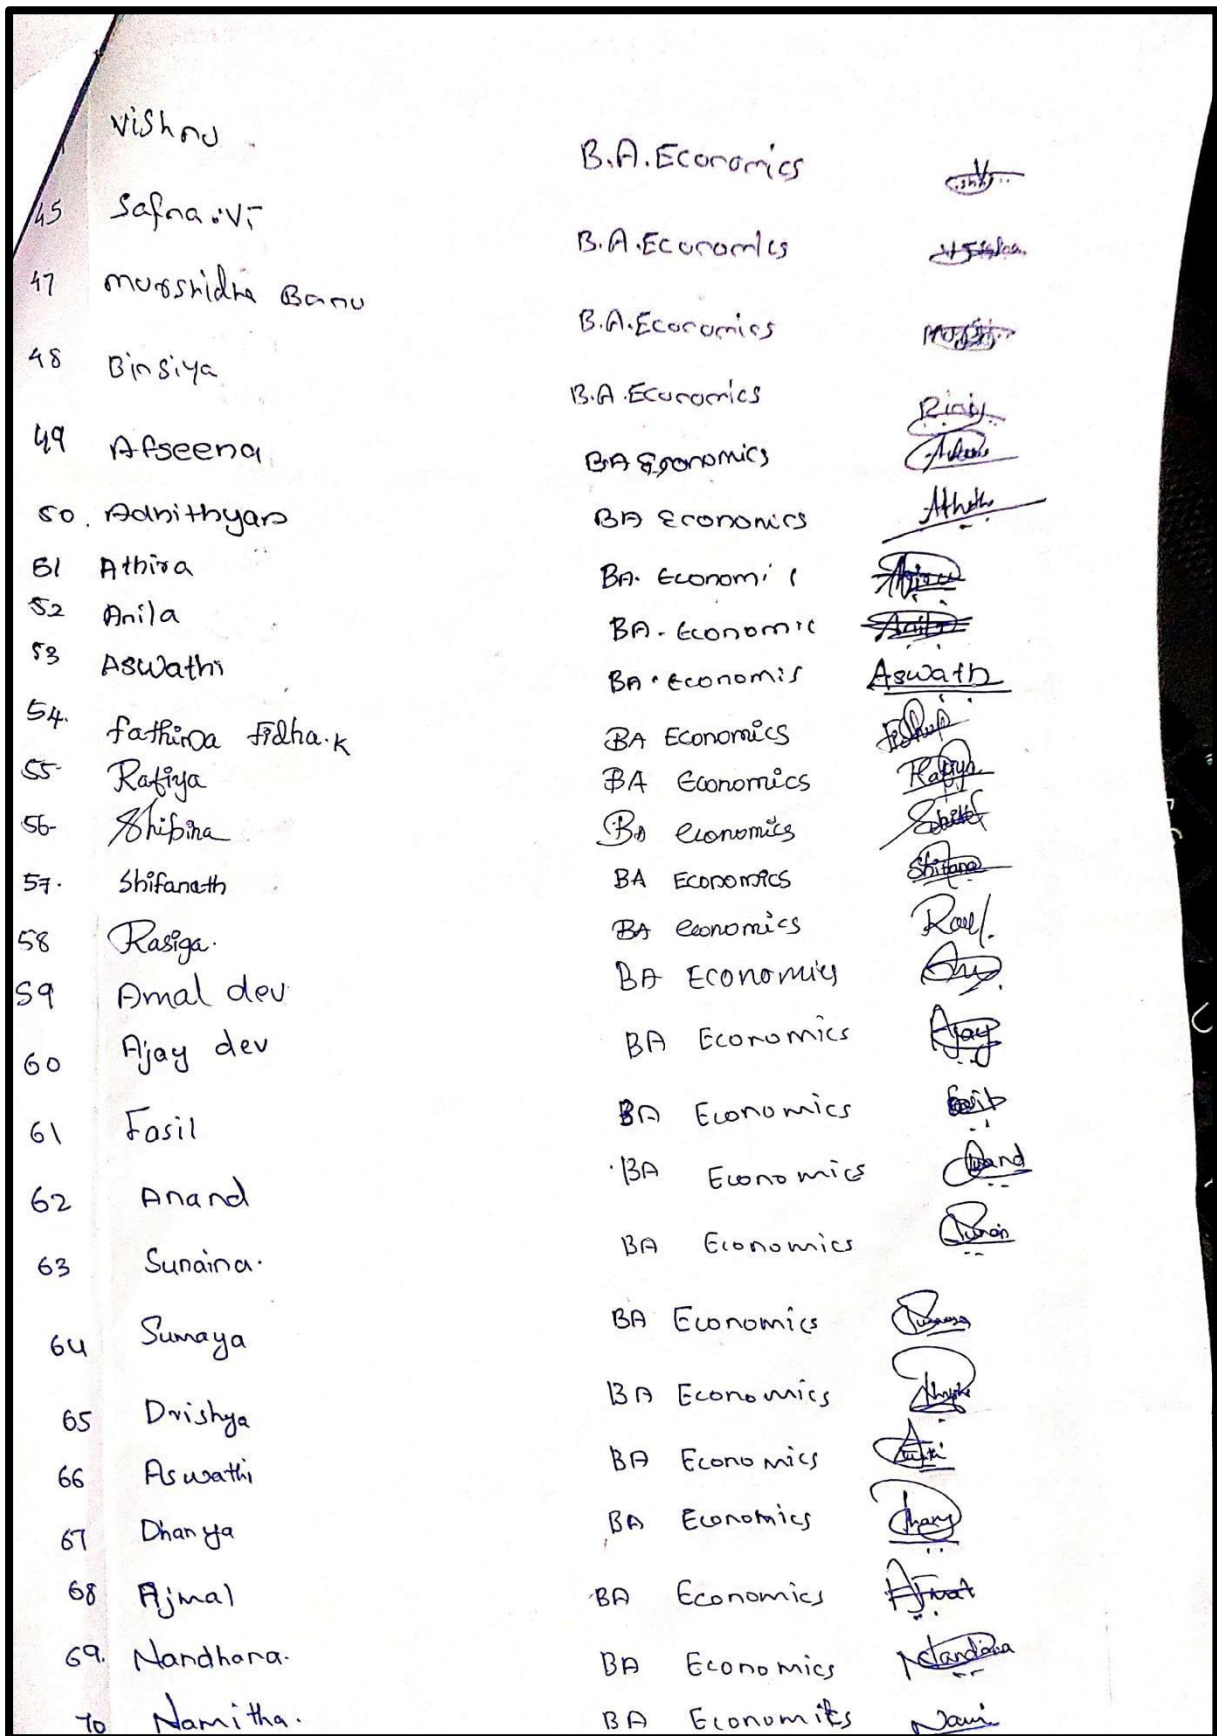 Vishnu B.A. Economics
45 Safna.V.T B.A. Economics
47 Murshidha Banu B.A. Economics
48 Binsiya B.A. Economics
49 Afseena BA Economics
50. Adhithyan BA Economics
51 Athira BA. Economic
52 Anila BA. Economic
53 Aswathi BA. Economis Aswath
54. Fathima Fidha.K BA Economics
55- Rafiya BA Economics Rafiya
56- Shibina BA economics
57. Shifanath BA Economics Shifana
58 Rasiga. BA economics
59 Amal dev BA Economics
60 Ajay dev BA Economics Ajay
61 Fasil BA Economics
62 Anand BA Economics Anand
63 Sunaina. BA Economics
64 Sumaya BA Economics
65 Drishya BA Economics
66 Aswathi BA Economics
67 Dhanya BA Economics Dhany
68 Ajmal BA Economics Ajmal
69. Nandhana. BA Economics Nandana
70 Namitha. BA Economics Nami